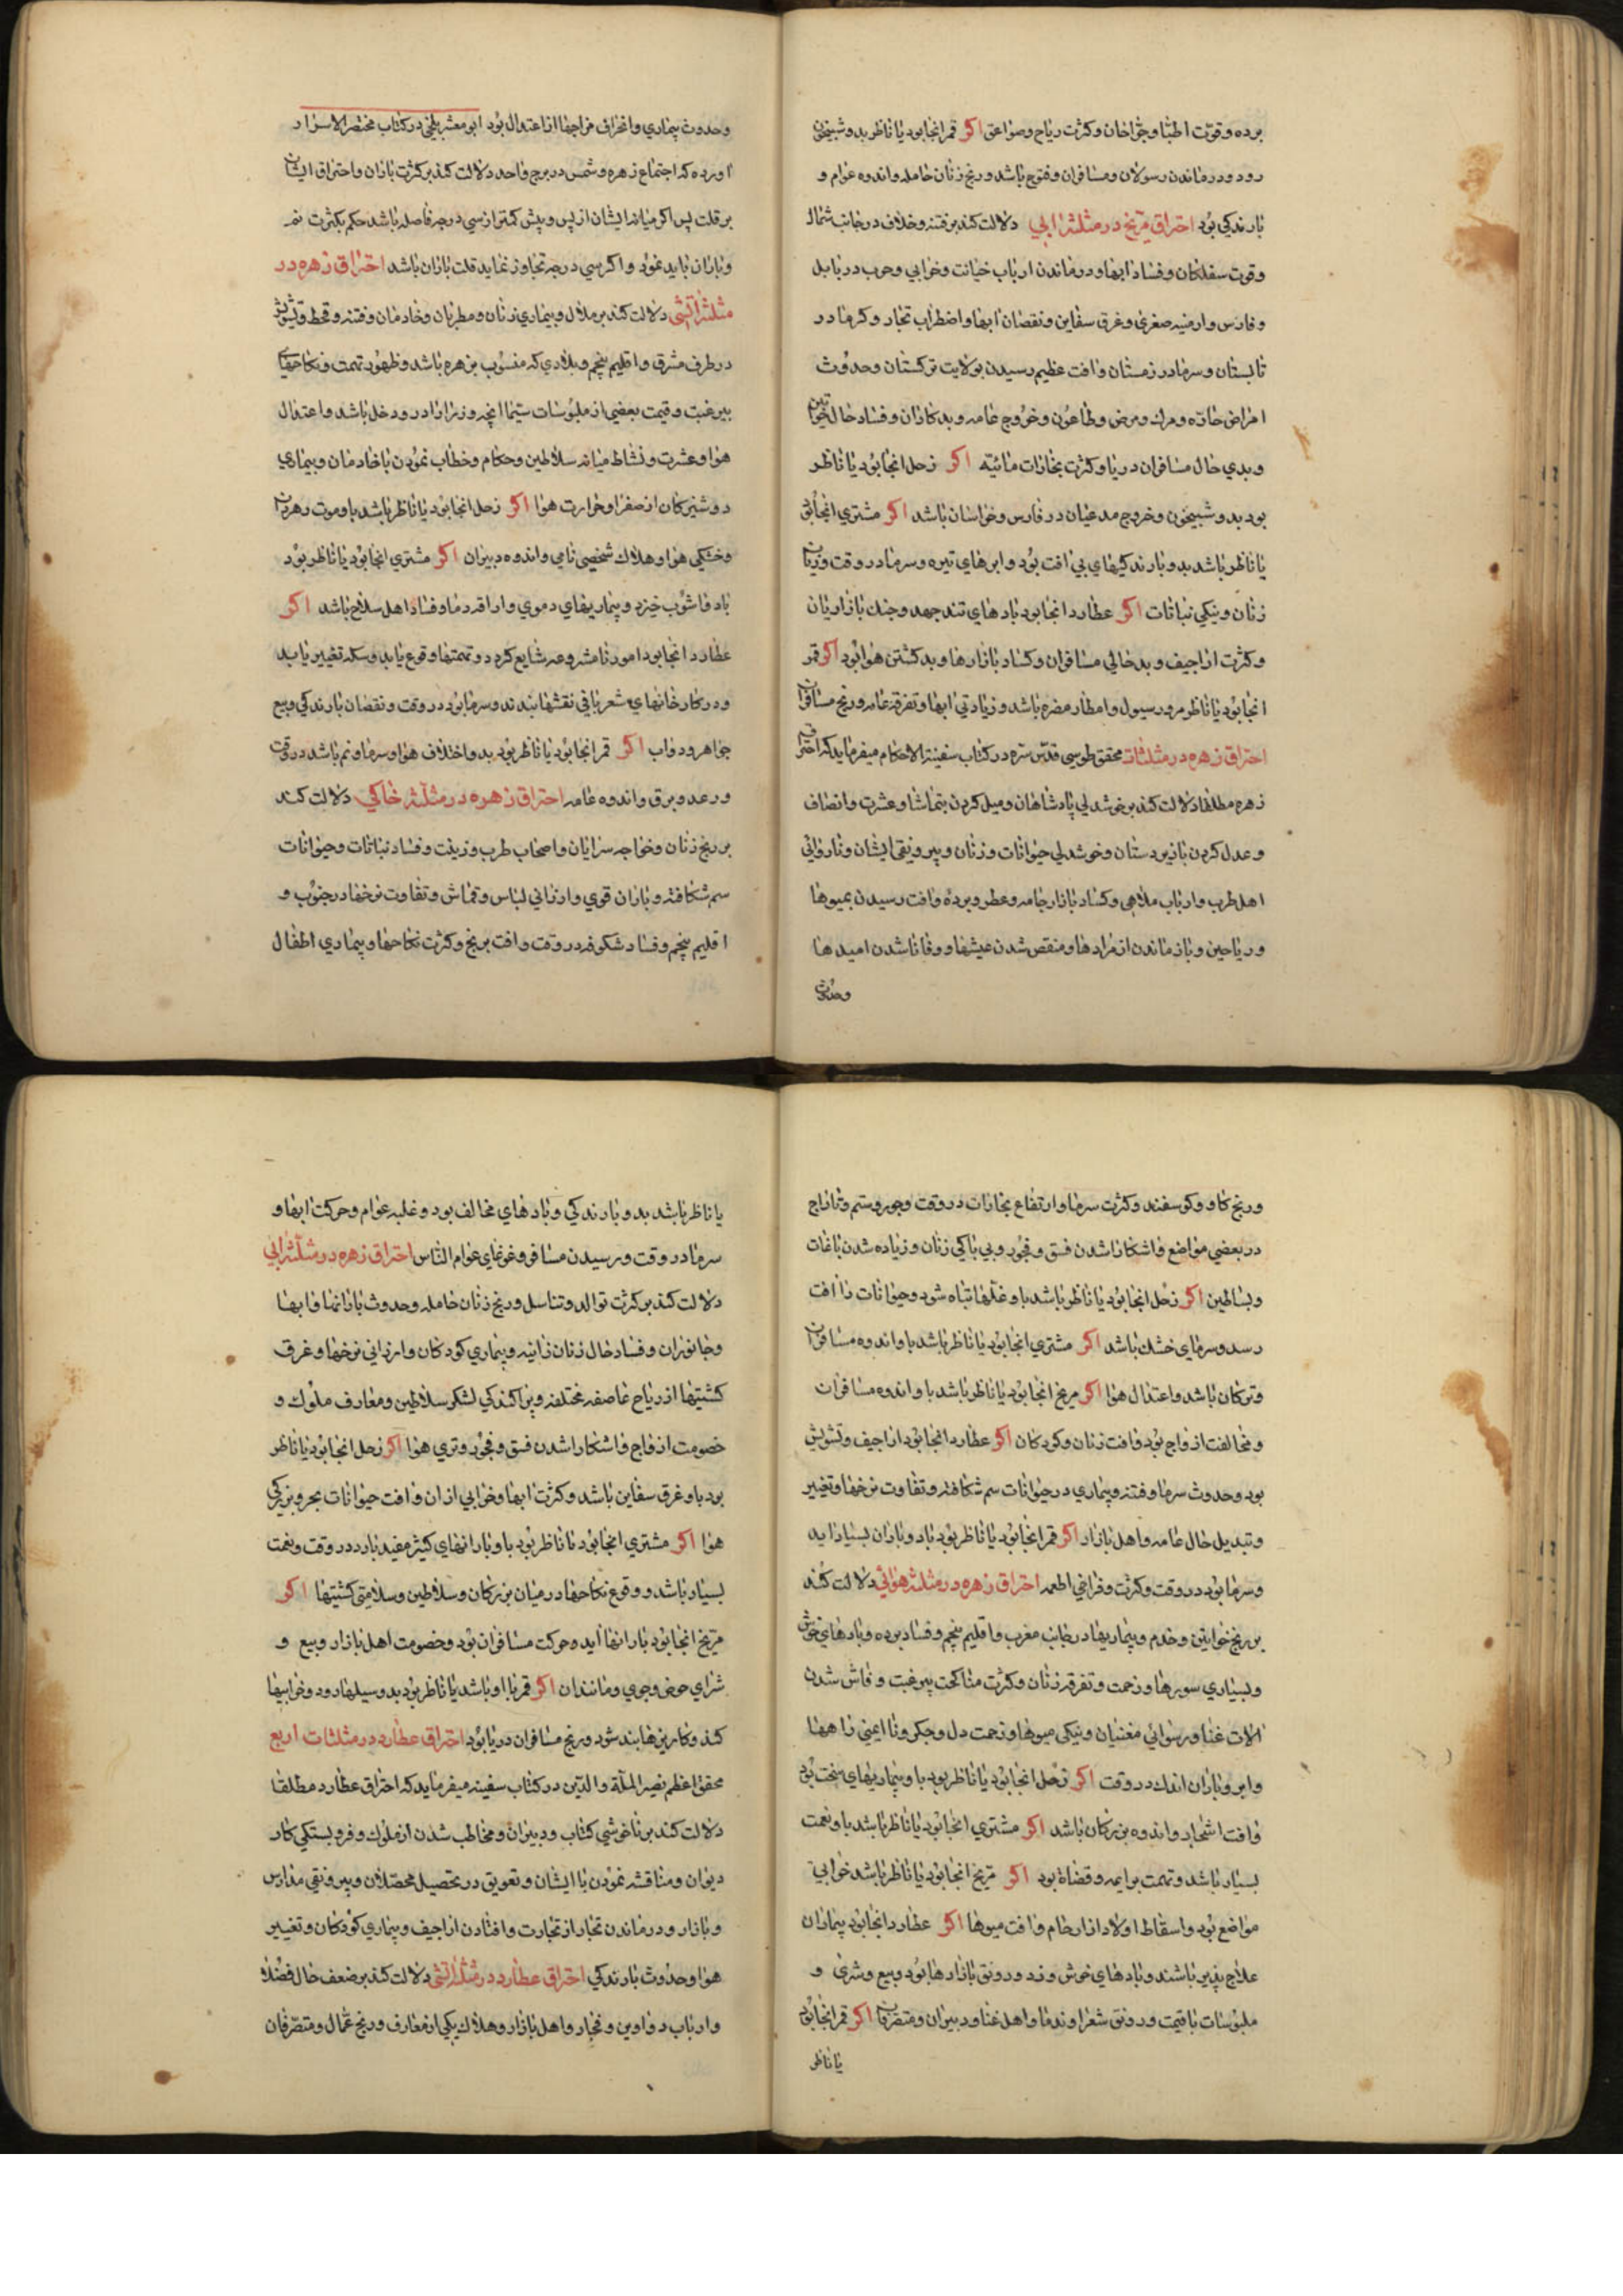 برده وقوت اطبا وجراحان وکثرت ریاح وصواعق اکر قمر انجا بود یا ناظر بدو شبیخون
رود ودرماندن رسولان ومسافران وفتوح باشد ورنج زنان حامله واندوه عوام و
بارندکی بود احتراق مریخ در مثلثه ابی دلالت کند بر فتنه وخلاف در جانب شمال
وقوت سفلکان وفساد ابها ودرماندن ارباب خیانت وخرابی وحرب در بابل
وفارس وارمنیه صغری وغرق سفاین ونقصان ابها واضطراب تجار وکرما در
تابستان وسرما در زمستان وافت عظیم رسیدن بولایت ترکستان وحدوث
امراض حاده ومرک ومرض وطاعون وخروج عامه وبدکاران وفساد حال خواتین
وبدی حال مسافران دریا وکثرت بخارات مائیه اکر زحل انجا بود یا ناظر
بود بدو شبیخون وخروج مدعیان در فارس وخراسان باشد اکر مشتری انجا بود
یا ناظر باشد بدو بارندکیهای بی افت بود وابرهای تیره وسرما در وقت وزیان
زنان ونیکی نباتات اکر عطارد انجا بود بادهای تند جهد وجنک بازاریان
وکثرت اراجیف وبدحالی مسافران وکساد بازارها وبد کشتن هوا بود اکر قمر
انجا بود یا ناظر مرور سیول وامطار مضره باشد وزیادتی ابها وتفرقه عامه ورنج مسافران
احتراق زهره در مثلثات محقق طوسی قدس سره در کتاب سفینة الاحکام میفرماید که احتراق
زهره مطلقا دلالت کند بر خوشدلی پادشاهان ومیل کردن بتماشا وعشرت وانصاف
وعدل کردن با زیردستان وخوشدلی حیوانات وزنان وبیرونقی ایشان وناروائی
اهل طرب وارباب ملاهی وکساد بازار جامه وعطر وبرده وافت رسیدن بمیوها
وریاحین وباز ماندن از مرادها ومنقص شدن عیشها ووفا ناشدن امیدها
وحدوث
وحدوث بیماری وانحراف مزاجها از اعتدال بود ابو معشر بلخی در کتاب مختصر الاسرار
اورده که اجتماع زهره وشمس در برج واحد دلالت کند بر کثرت باران واحتراق ایشان
بر قلت پس اکر میانه ایشان از پس وپیش کمتر از سی درجه فاصله باشد حکم بکثرت نم
وباران باید نمود واکر سی درجه تجاوز نماید قلت باران باشد احتراق زهره در
مثلثه اتشی دلالت کند بر ملال وبیماری زنان ومطربان وخادمان وفتنه وقحط وتشویش
در طرف مشرق واقلیم پنجم وبلادی که منسوب بزهره باشد وظهور تهمت ونکاحهای
بیرغبت وقیمت بعضی از ملبوسات سیما انچه وزرا را در ودخل باشد واعتدال
هوا وعشرت ونشاط میانه سلاطین وحکام وخطاب نمودن با خادمان وبیماری
دوشیزکان از صفرا وحرارت هوا اکر زحل انجا بود یا ناظر باشد باو موت رهبران
وخشکی هوا وهلاک شخصی نامی واندوه دبیران اکر مشتری انجا بود یا ناظر بود
باد فاشوب خیزد وبیماریهای دموی واراقه دما وفساد اهل سلاح باشد اکر
عطارد انجا بود امور نامشروعه شایع کردد وتهمتها وقوع یابد وسکه تغییر یابد
ودر کارخانهای شعربافی نقشها بندند وسرما بود در وقت ونقصان بارندکی وبیع
جواهر ودواب اکر قمر انجا بود یا ناظر بود بدو اختلاف هوا وسرما ونم باشد در وقت
ورعد وبرق واندوه عامه احتراق زهره در مثلثه خاکی دلالت کند
بر رنج زنان وخواجه سرایان واصحاب طرب وزینت وفساد نباتات وحیوانات
سم شکافته وباران قوی وارزانی لباس وقماش وتفاوت نرخها در جنوب و
اقلیم پنجم وفساد شکوفه در وقت وافت برنج وکثرت نکاحها وبیماری اطفال
ورنج کاو وکوسفند وکثرت سرما وارتفاع بخارات در وقت وجور وستم وتاراج
در بعضی مواضع واشکارا شدن فسق وفجور وبی باکی زنان وزیاده شدن باغات
وبساطین اکر زحل انجا بود یا ناظر باشد باو غلها تباه شود وحیوانات را افت
رسد وسرمای خشک باشد اکر مشتری انجا بود یا ناظر باشد باو اندوه مسافران
وترکان باشد واعتدال هوا اکر مریخ انجا بود یا ناظر باشد باو اندوه مسافران
ومخالفت ازواج بود وافت زنان وکودکان اکر عطارد انجا بود اراجیف وتشویش
بود وحدوث سرما وفتنه وبیماری در حیوانات سم شکافته وتفاوت نرخها وتغییر
وتبدیل حال عامه واهل بازار اکر قمر انجا بود یا ناظر بود باد وباران بسیار اید
وسرما بود در وقت وکثرت وفراخی اطعمه احتراق زهره در مثلثه هوائی دلالت کند
بر رنج خواتین وخدم وبیماریها در جانب مغرب واقلیم پنجم وفساد برده وبادهای خوش
وبسیاری سورها وزحمت وتفرقه زنان وکثرت مناکحت بیرغبت وفاش شدن
الات غنا ورسوائی مغنیان ونیکی میوها وزحمت دل وجکر وناایمنی راهها
وابر وباران اندک در وقت اکر زحل انجا بود یا ناظر بود باو بیماریهای سخت بود
وافت اشجار واندوه بزرکان باشد اکر مشتری انجا بود یا ناظر باشد باو نعمت
بسیار باشد وتهمت بر ایمه وقضاة بود اکر مریخ انجا بود یا ناظر باشد خرابی
مواضع بود واسقاط اولاد از ارحام وافت میوها اکر عطارد انجا بود بیماران
علاج پذیر باشند وبادهای خوش وزد ورونق بازارها بود وبیع وشری و
ملبوسات با قیمت ورونق شعرا وندما واهل غنا ودبیران ومتصرفان اکر قمر انجا بود
یا ناظر
یا ناظر باشد بدو بارندکی وبادهای مخالف بود وغلبه عوام وحرکت ابها و
سرما در وقت ورسیدن مسافر وغوغای عوام الناس احتراق زهره در مثلثه ابی
دلالت کند بر کثرت توالد وتناسل ورنج زنان حامله وحدوث بارانها وابها
وجانوران وفساد حال زنان زانیه وبیماری کودکان وارزانی نرخها وغرق
کشتیها از ریاح عاصفه مختلفه وپراکندکی لشکر سلاطین ومعارف ملوک و
خصومت ازواج واشکارا شدن فسق وفجور وتری هوا اکر زحل انجا بود یا ناظر
بود باو غرق سفاین باشد وکثرت ابها وخرابی از ان وافت حیوانات بحر وبزرکی
هوا اکر مشتری انجا بود یا ناظر بود باو بارانهای کثیر مفید بارد در وقت ونعمت
بسیار باشد ووقوع نکاحها در میان بزرکان وسلاطین وسلامتی کشتیها اکر
مریخ انجا بود بارانها اید وحرکت مسافران بود وخصومت اهل بازار وبیع و
شرای حوض وجوی ومانند ان اکر قمر با او باشد یا ناظر بود بدو سیلها رود وخرابیها
کند وکاریزها بند شود ورنج مسافران دریا بود احتراق عطارد در مثلثات اربع
محقق اعظم نصیر الملة والدین در کتاب سفینه میفرماید که احتراق عطارد مطلقا
دلالت کند بر ناخوشی کتاب ودبیران ومخاطب شدن از ملوک وفروبستکی کار
دیوان ومناقشه نمودن با ایشان وتعویق در تحصیل محصلان وبیرونقی مدارس
وبازار ودرماندن تجار از تجارت وافتادن اراجیف وبیماری کودکان وتغییر
هوا وحدوث بارندکی احتراق عطارد در مثلثه اتشی دلالت کند بر ضعف حال فضلا
وارباب دواوین وفجار واهل بازار وهلاک یکی از معارف ورنج عمال ومتصرفان